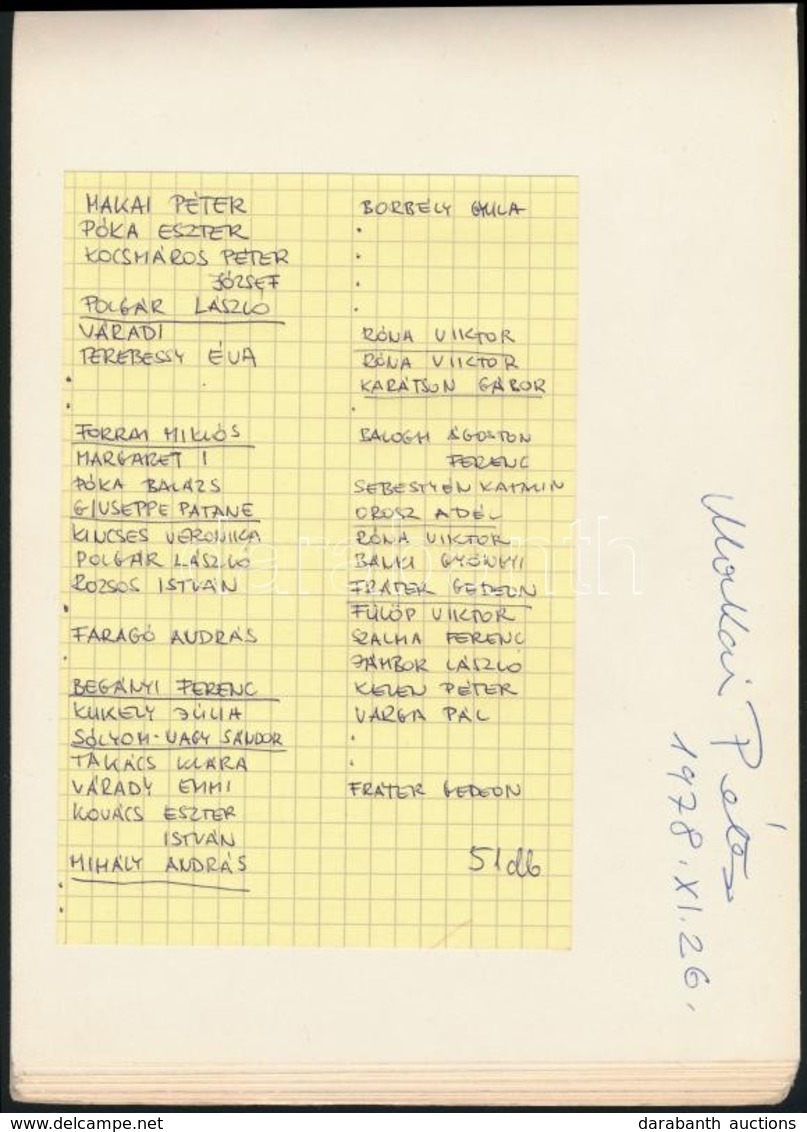 MAKAI PÉTER
PÓKA ESZTER
KOCSMÁROS PÉTER
JÓZSEF
POLGÁR LÁSZLÓ
VÁRADI
TEREBESSY ÉVA
.
.
FORRAI MIKLÓS
MARGARET I
PÓKA BALÁZS
GIUSEPPE PATANE
KINCSES VERONIKA
POLGÁR LÁSZLÓ
ROZSOS ISTVÁN
.
FARAGÓ ANDRÁS
.
BEGÁNYI FERENC
KUKELY JÚLIA
SÓLYOM-NAGY SÁNDOR
TAKÁCS KLÁRA
VÁRADY EMMI
KOVÁCS ESZTER
ISTVÁN
MIHÁLY ANDRÁS
.
.
BORBÉLY GYULA
.
.
.
.
RÓNA VIKTOR
RÓNA VIKTOR
KARÁTSON GÁBOR
.
BALOGH ÁGOSTON
FERENC
SEBESTYÉN KATALIN
OROSZ ADÉL
RÓNA VIKTOR
GYÖNGYI
FRÁTER GEDEON
FÜLÖP VIKTOR
SZALMA FERENC
JÁMBOR LÁSZLÓ
KELEN PÉTER
VARGA PÁL
.
.
FRÁTER GEDEON
51 db
Makai Péter
1978. XI. 26.
darabanth
darabanth auctions